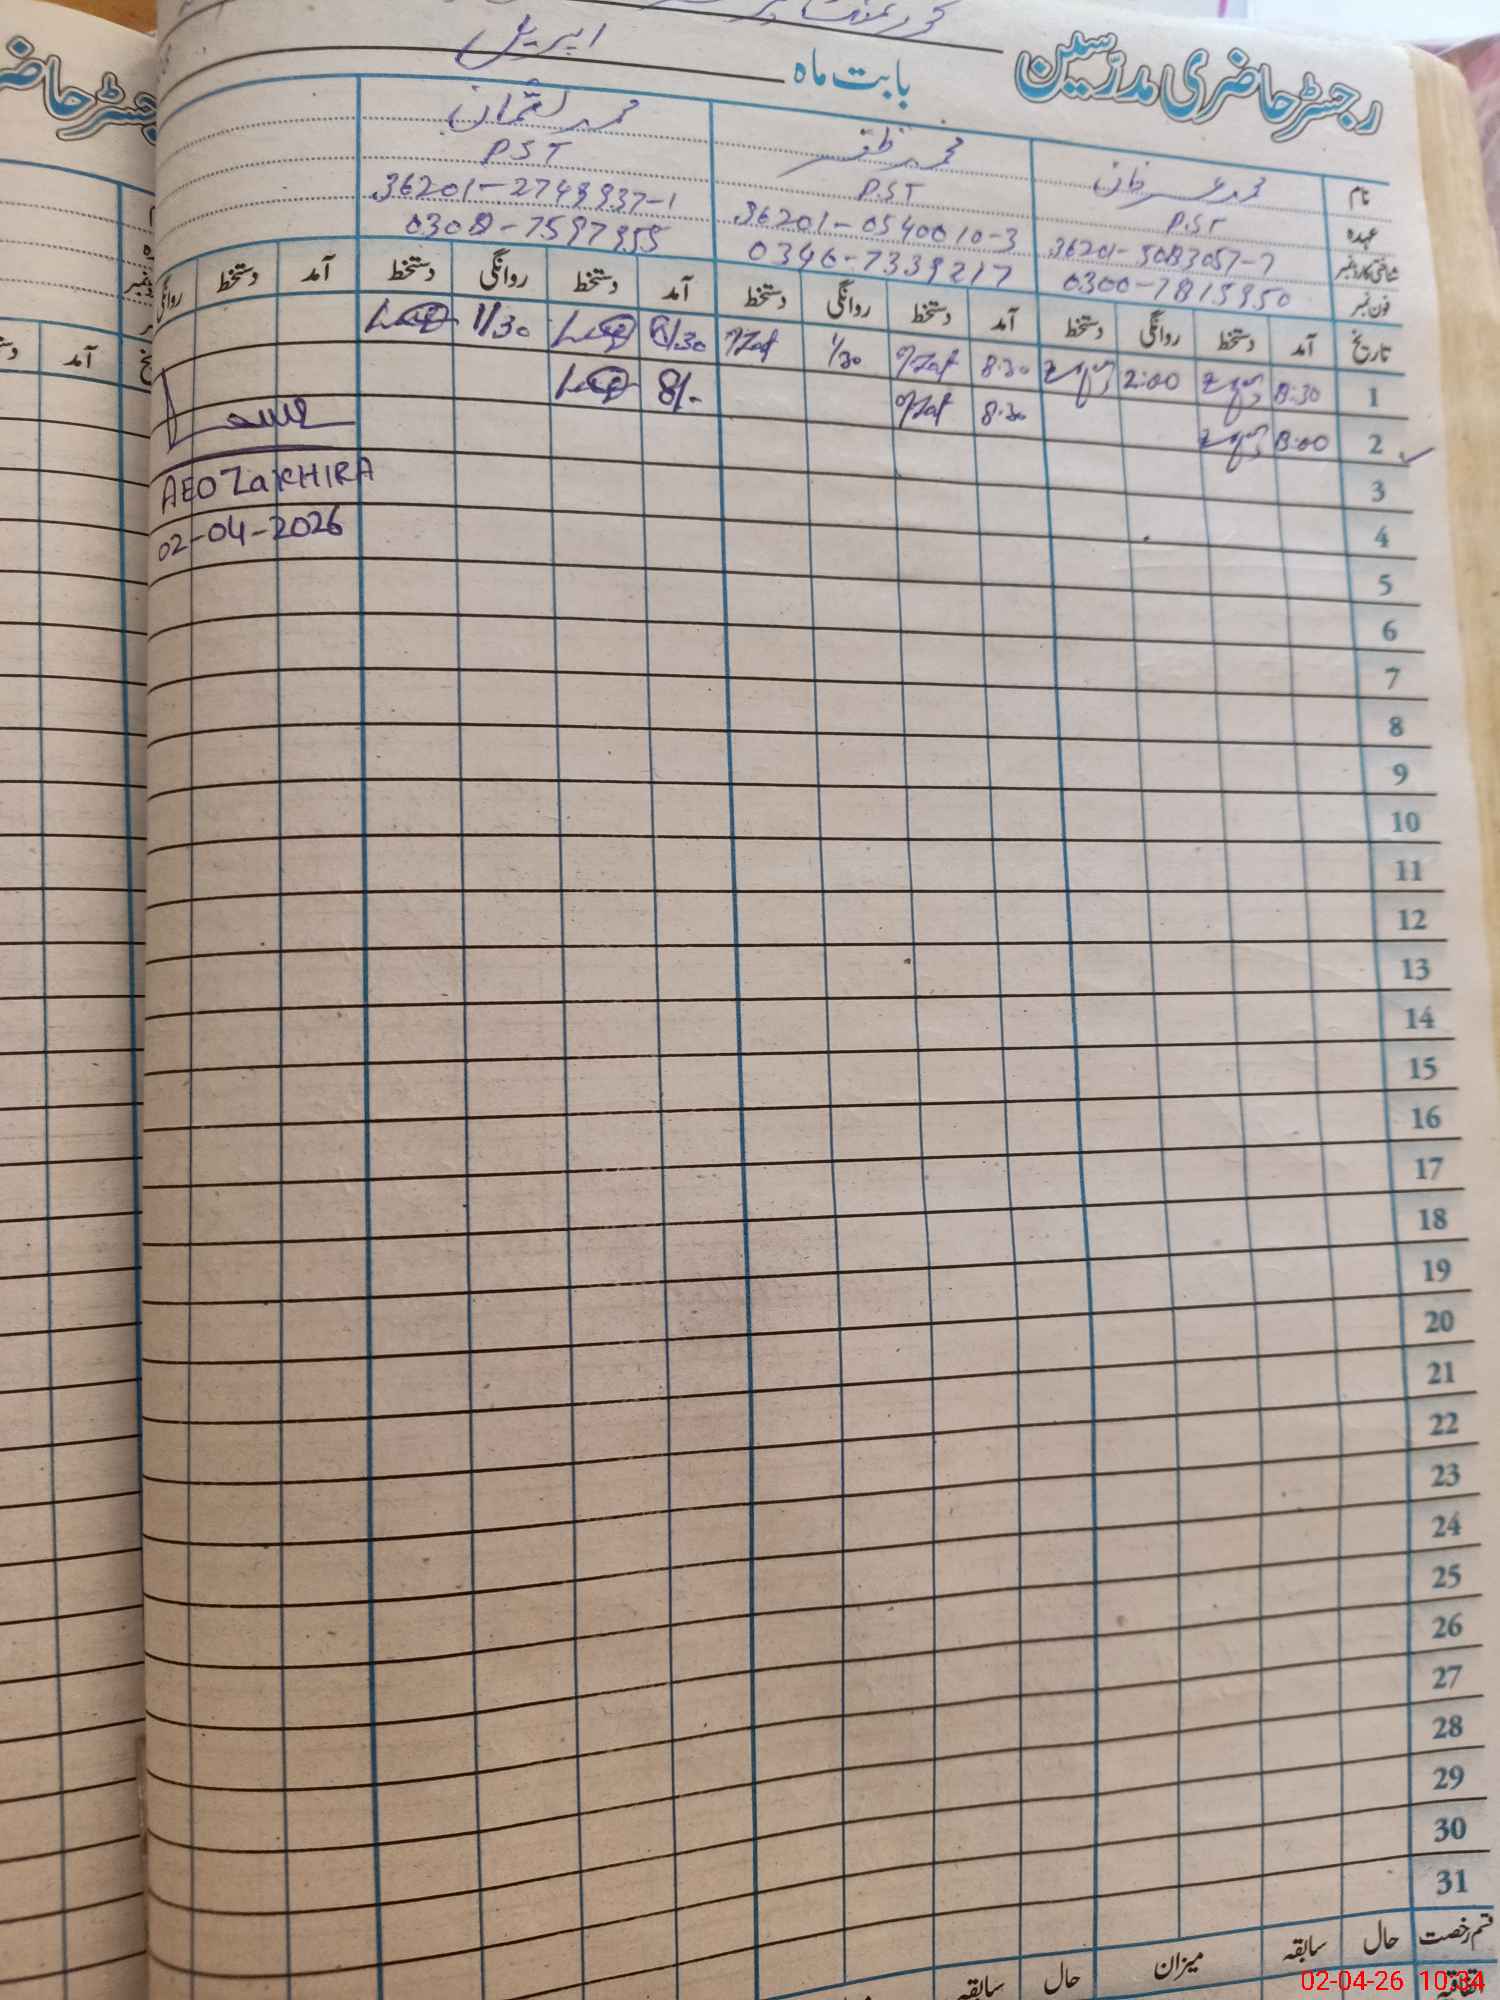 رجسٹر حاضری مدرسین
بابت ماہ اپریل
نام محمد عرفان محمد ظفر محمد لقمان
عہدہ P.ST P.ST PST
شناختی کارڈ نمبر 36201-0540010-3 36201-2749937-1
فون نمبر 0300-7815950 0346-7339217
تاریخ آمد دستخط روانگی دستخط آمد دستخط روانگی دستخط آمد دستخط روانگی دستخط آمد دستخط روانگی
1 8:30 2:00 8:30 1/30 8/30 1/30
2 8:00 8:30 8/-
AEO ZaKHIRA
02-04-2026
3
4
5
6
7
8
9
10
11
12
13
14
15
16
17
18
19
20
21
22
23
24
25
26
27
28
29
30
31
قسم رخصت حال سابقہ میزان حال سابقہ
رجسٹر حاضر
آمد
02-04-26 10:34